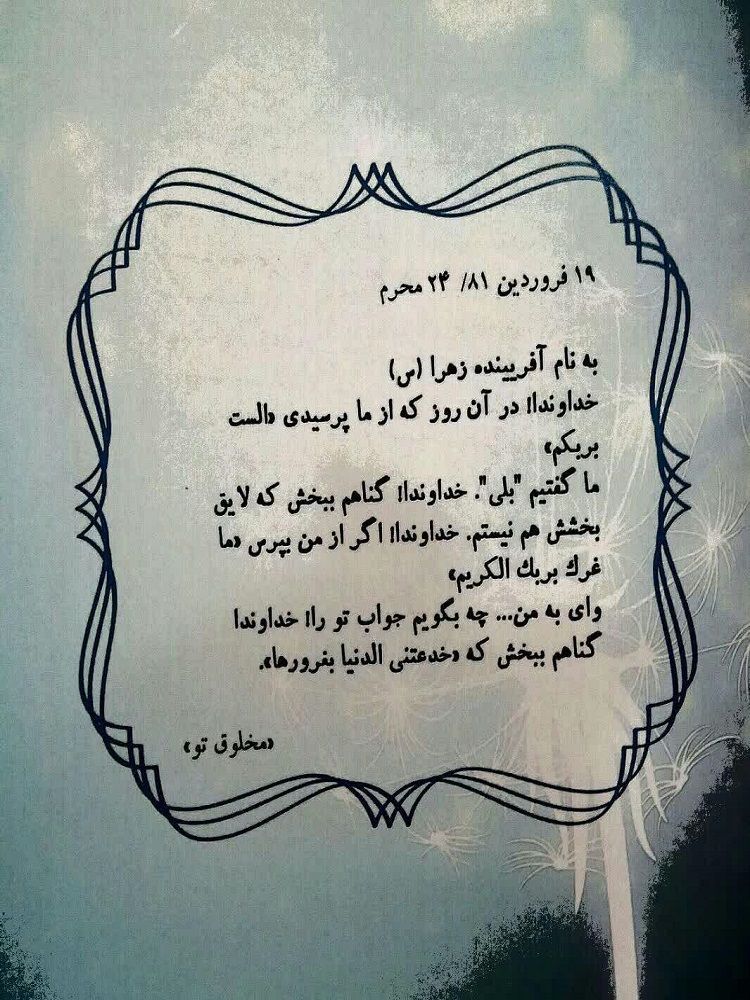 ۱۹ فروردین ۸۱/ ۲۴ محرم
به نام آفریینده زهرا (س)
خداوندا! در آن روز که از ما پرسیدی «الست
بربکم»
ما گفتیم "بلی". خداوندا! گناهم ببخش که لایق
بخشش هم نیستم. خداوندا! اگر از من بپرس «ما
غرك بربك الکریم»
وای به من... چه بگویم جواب تو را! خداوندا
گناهم ببخش که «خدعتنی الدنیا بغرورها».
«مخلوق تو»